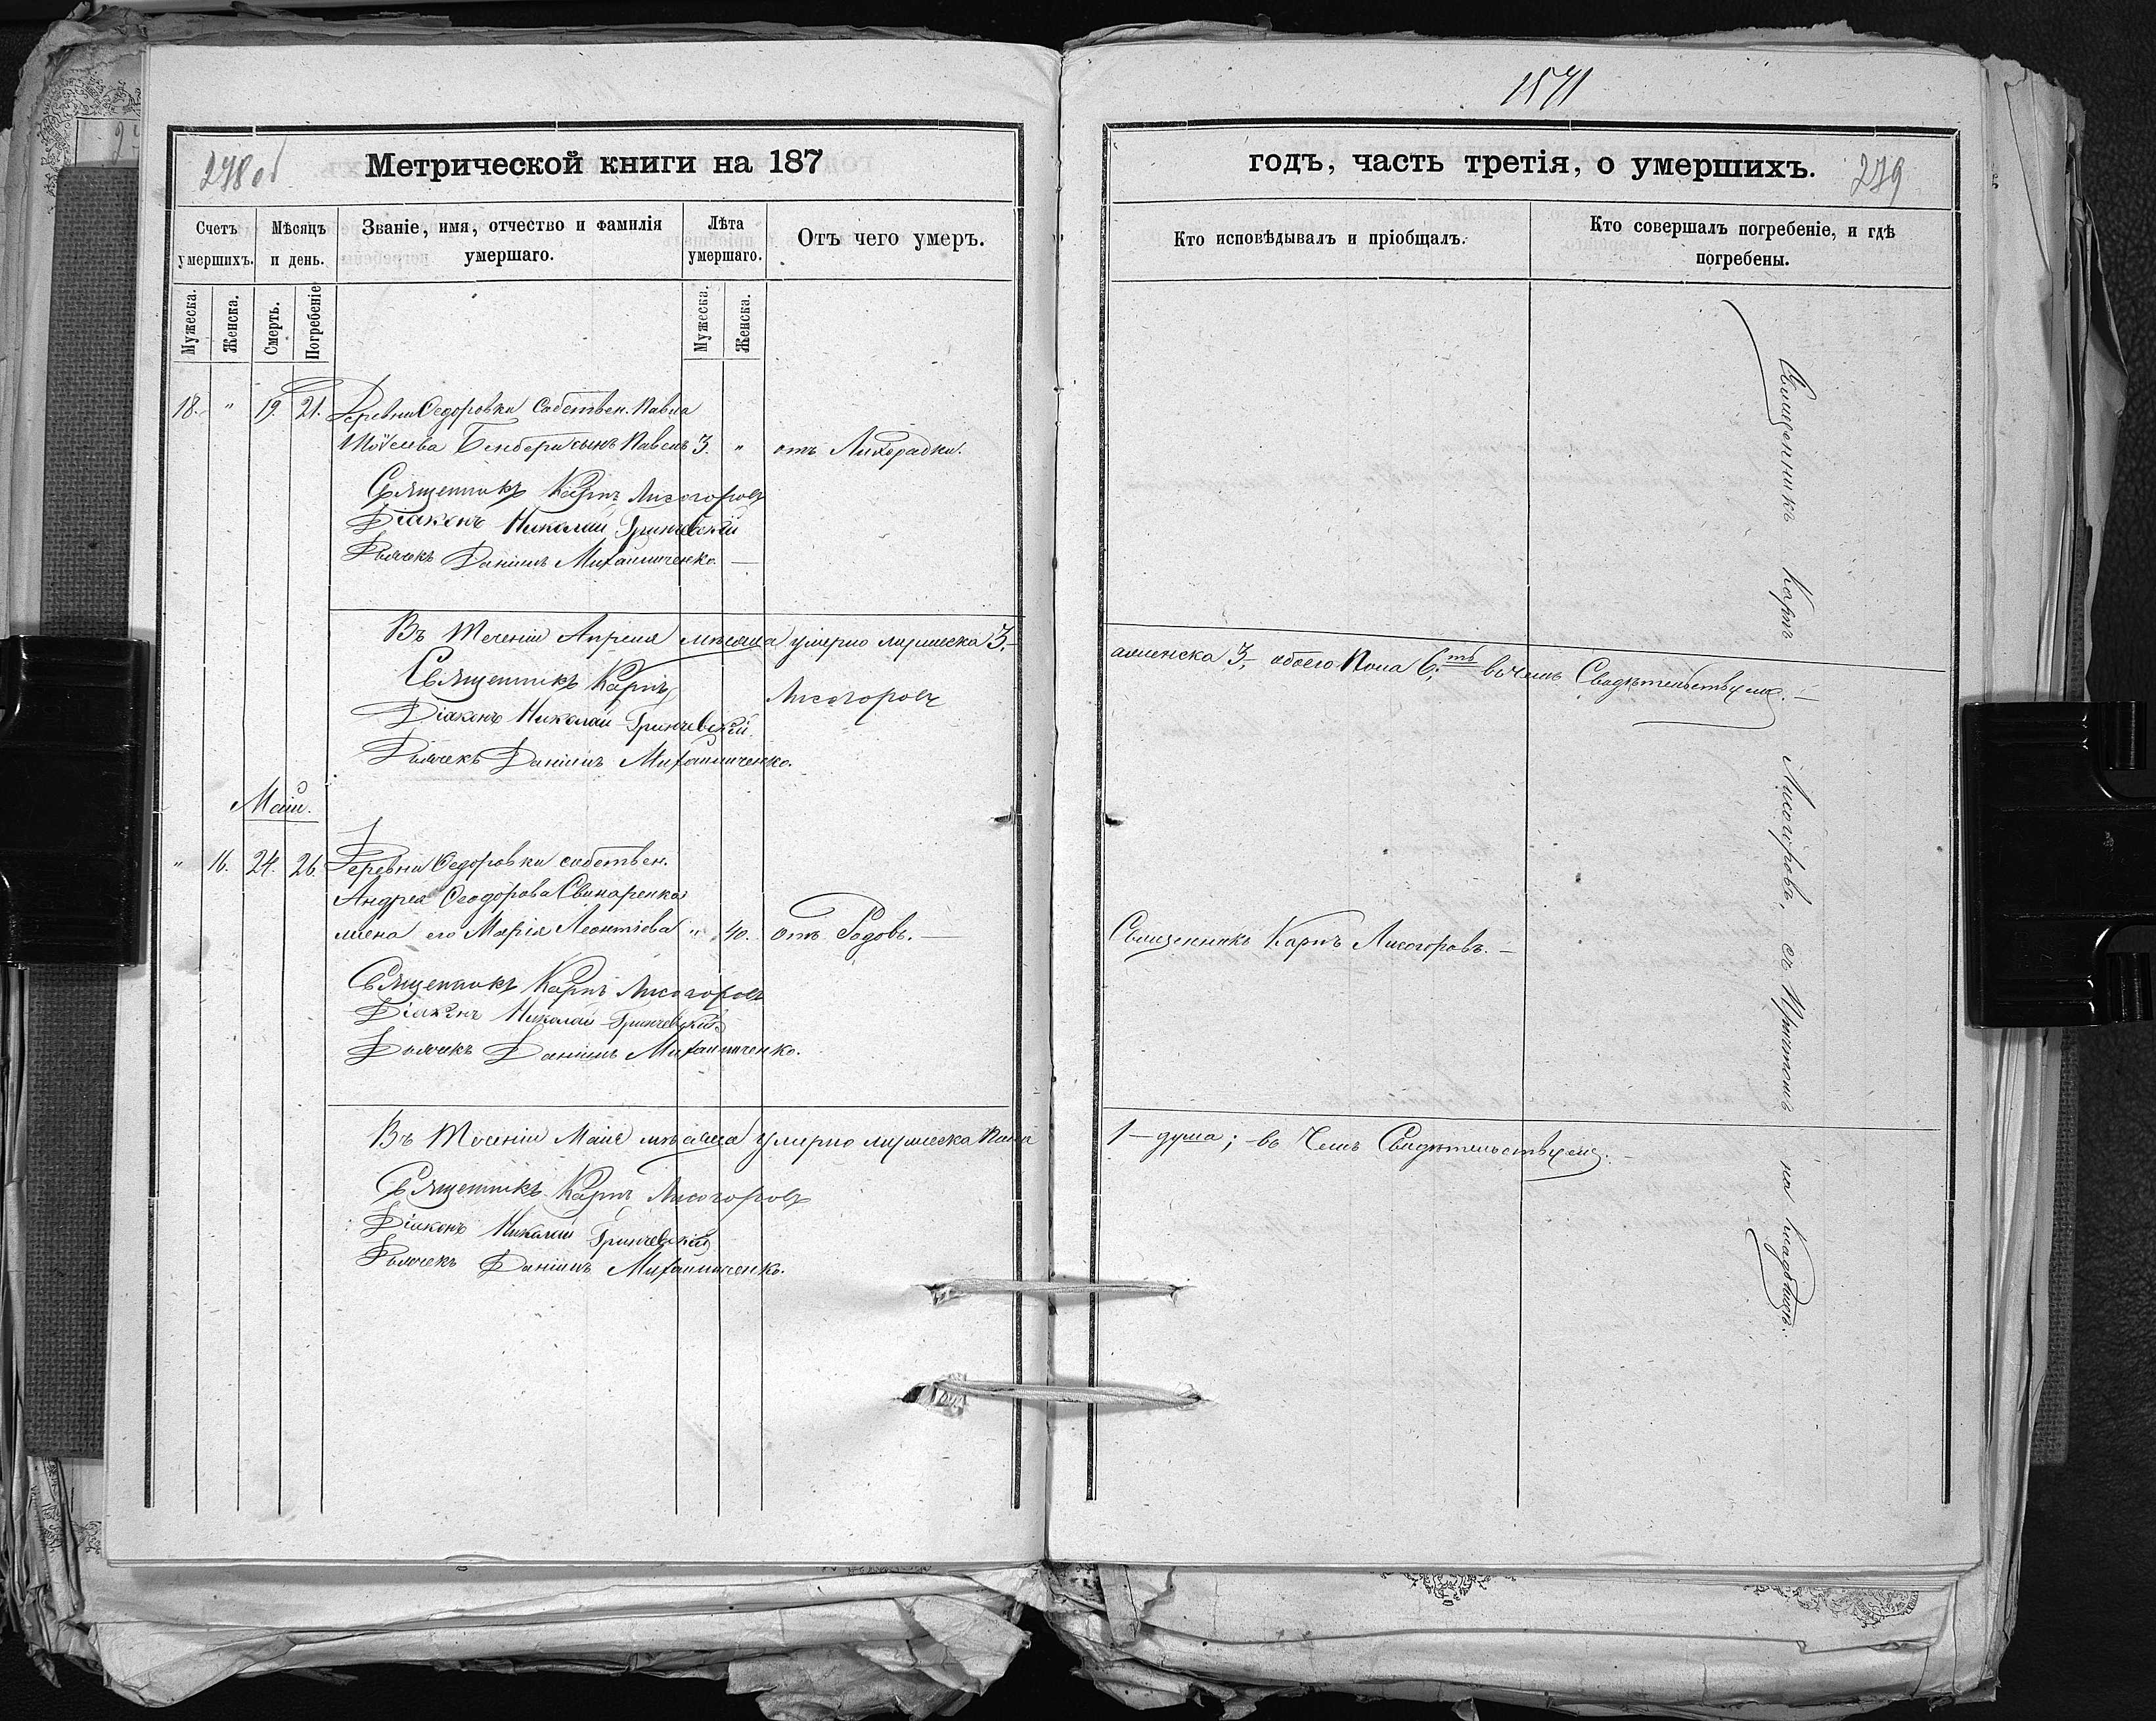 1571
278 об
Метрической книги на 187
годъ, часть третія, о умершихъ.
279
Счетъ умершихъ.
Мѣсяцъ и день.
Званіе, имя, отчество и фамилія умершаго.
Лѣта умершаго.
Отъ чего умеръ.
Кто исповѣдывалъ и пріобщалъ.
Кто совершалъ погребеніе, и гдѣ погребены.
Мужеска.
Женска.
Смерть.
Погребеніе
Мужеска.
Женска.
18. " 19. 21. Деревни Федоровки Собствен. Павла
Сынъ Павелъ 3. " отъ Лихорадки.
Священникъ Карпъ Лисогоровъ
Діаконъ Николай Гринчевскій
Дьячекъ Даніилъ Михайличенко. —
Въ Теченіи Апреля мѣсяца умерло мужеска 3,—
аженска 3,— обоего Пола 6; вочемъ Свидѣтельствуемъ. —
Священникъ Карпъ Лисогоровъ
Діаконъ Николай Гринчевскій.
Дьячекъ Даніилъ Михайличенко.
Май.
" 16. 24. 26. Деревни Федоровки собствен.
Андрея Феодорова Свинаренка
жена его Марія Леонтіева " 40. отъ Родовъ. —
Священникъ Карпъ Лисогоровъ. —
Священникъ Карпъ Лисогоровъ
Діаконъ Николай Гринчевскій
Дьячекъ Даніилъ Михайличенко.
Въ Теченіи Маія мѣсяца умерло мужеска Пола
1 — душа; — во Чемъ Свидѣтельствуемъ. —
Священникъ Карпъ Лисогоровъ
Діаконъ Николай Гринчевскій
Дьячекъ Даніилъ Михайличенко.
Священникъ Карпъ Лисогоровъ, съ Причтомъ на Кладбищѣ.